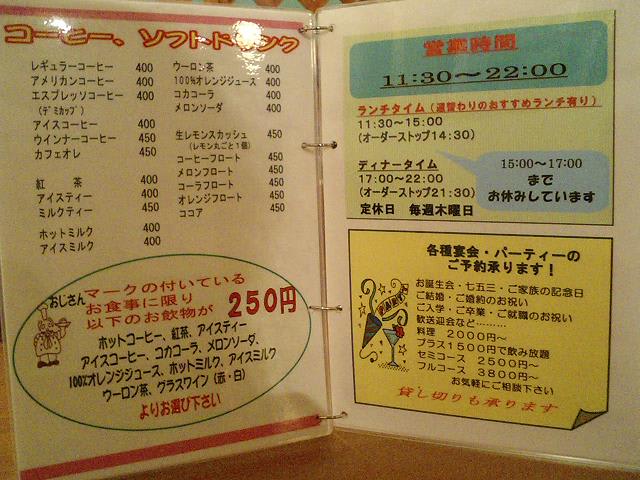 コーヒー、ソフトドリンク
レギュラーコーヒー 400
アメリカンコーヒー 400
エスプレッソコーヒー 400
(デミカップ)
アイスコーヒー 400
ウインナーコーヒー 450
カフェオレ 450
紅 茶 400
アイスティー 400
ミルクティー 450
ホットミルク 400
アイスミルク 400
ウーロン茶 400
100%オレンジジュース 400
コカコーラ 400
メロンソーダ 400
生レモンスカッシュ 450
(レモン丸ごと1個)
コーヒーフロート 450
メロンフロート 450
コーラフロート 450
オレンジフロート 450
ココア 450
おじさんマークの付いている
お食事に限り
以下のお飲物が 250円
ホットコーヒー、紅茶、アイスティー
アイスコーヒー、コカコーラ、メロンソーダ、
100%オレンジジュース、ホットミルク、アイスミルク
ウーロン茶、グラスワイン(赤・白)
よりお選び下さい
営業時間
11:30~22:00
ランチタイム(週替わりのおすすめランチ有り)
11:30~15:00
(オーダーストップ14:30)
ディナータイム
17:00~22:00
(オーダーストップ21:30)
定休日 毎週木曜日
15:00~17:00
まで
お休みしています
各種宴会・パーティーの
ご予約承ります!
お誕生会・七五三・ご家族の記念日
ご結婚・ご婚約のお祝い
ご入学・ご卒業・ご就職のお祝い
歓送迎会など………
料理 2000円~
プラス1500円で飲み放題
セミコース 2500円~
フルコース 3800円~
お気軽にご相談下さい
貸し切りも承ります
PARTY